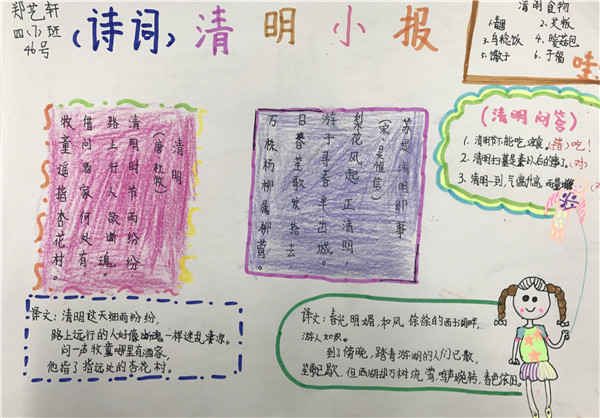 郑艺轩
四(7)班
46号
(诗词)清明小报
清明食物
2.艾粄
3.乌稔饭 4.暖菇包
5.馓子 6.子福
哇
(清明问答)
2.清明扫墓是秦以后的事了。(对)
3.清明一到,气温升高,雨量
清明
(唐 杜牧)
清明时节雨纷纷
路上行人欲断魂。
借问酒家何处有,
牧童遥指杏花村。
苏堤清明即事
梨花风起正清明,
游子寻春半出城。
日暮笙歌收拾去
万株杨柳属柳莺。
译文:清明这天细雨纷纷,
路上远行的人好像断魂一样迷乱凄凉。
问一声牧童哪里有酒家,
他指了指远处的杏花村。
译文:春光明媚,和风徐徐的西子湖畔,
游人如织。
到了傍晚,踏青游湖的人们已散,
笙歌已歇,但西湖却万树流莺,鸣声婉转,春色依旧。